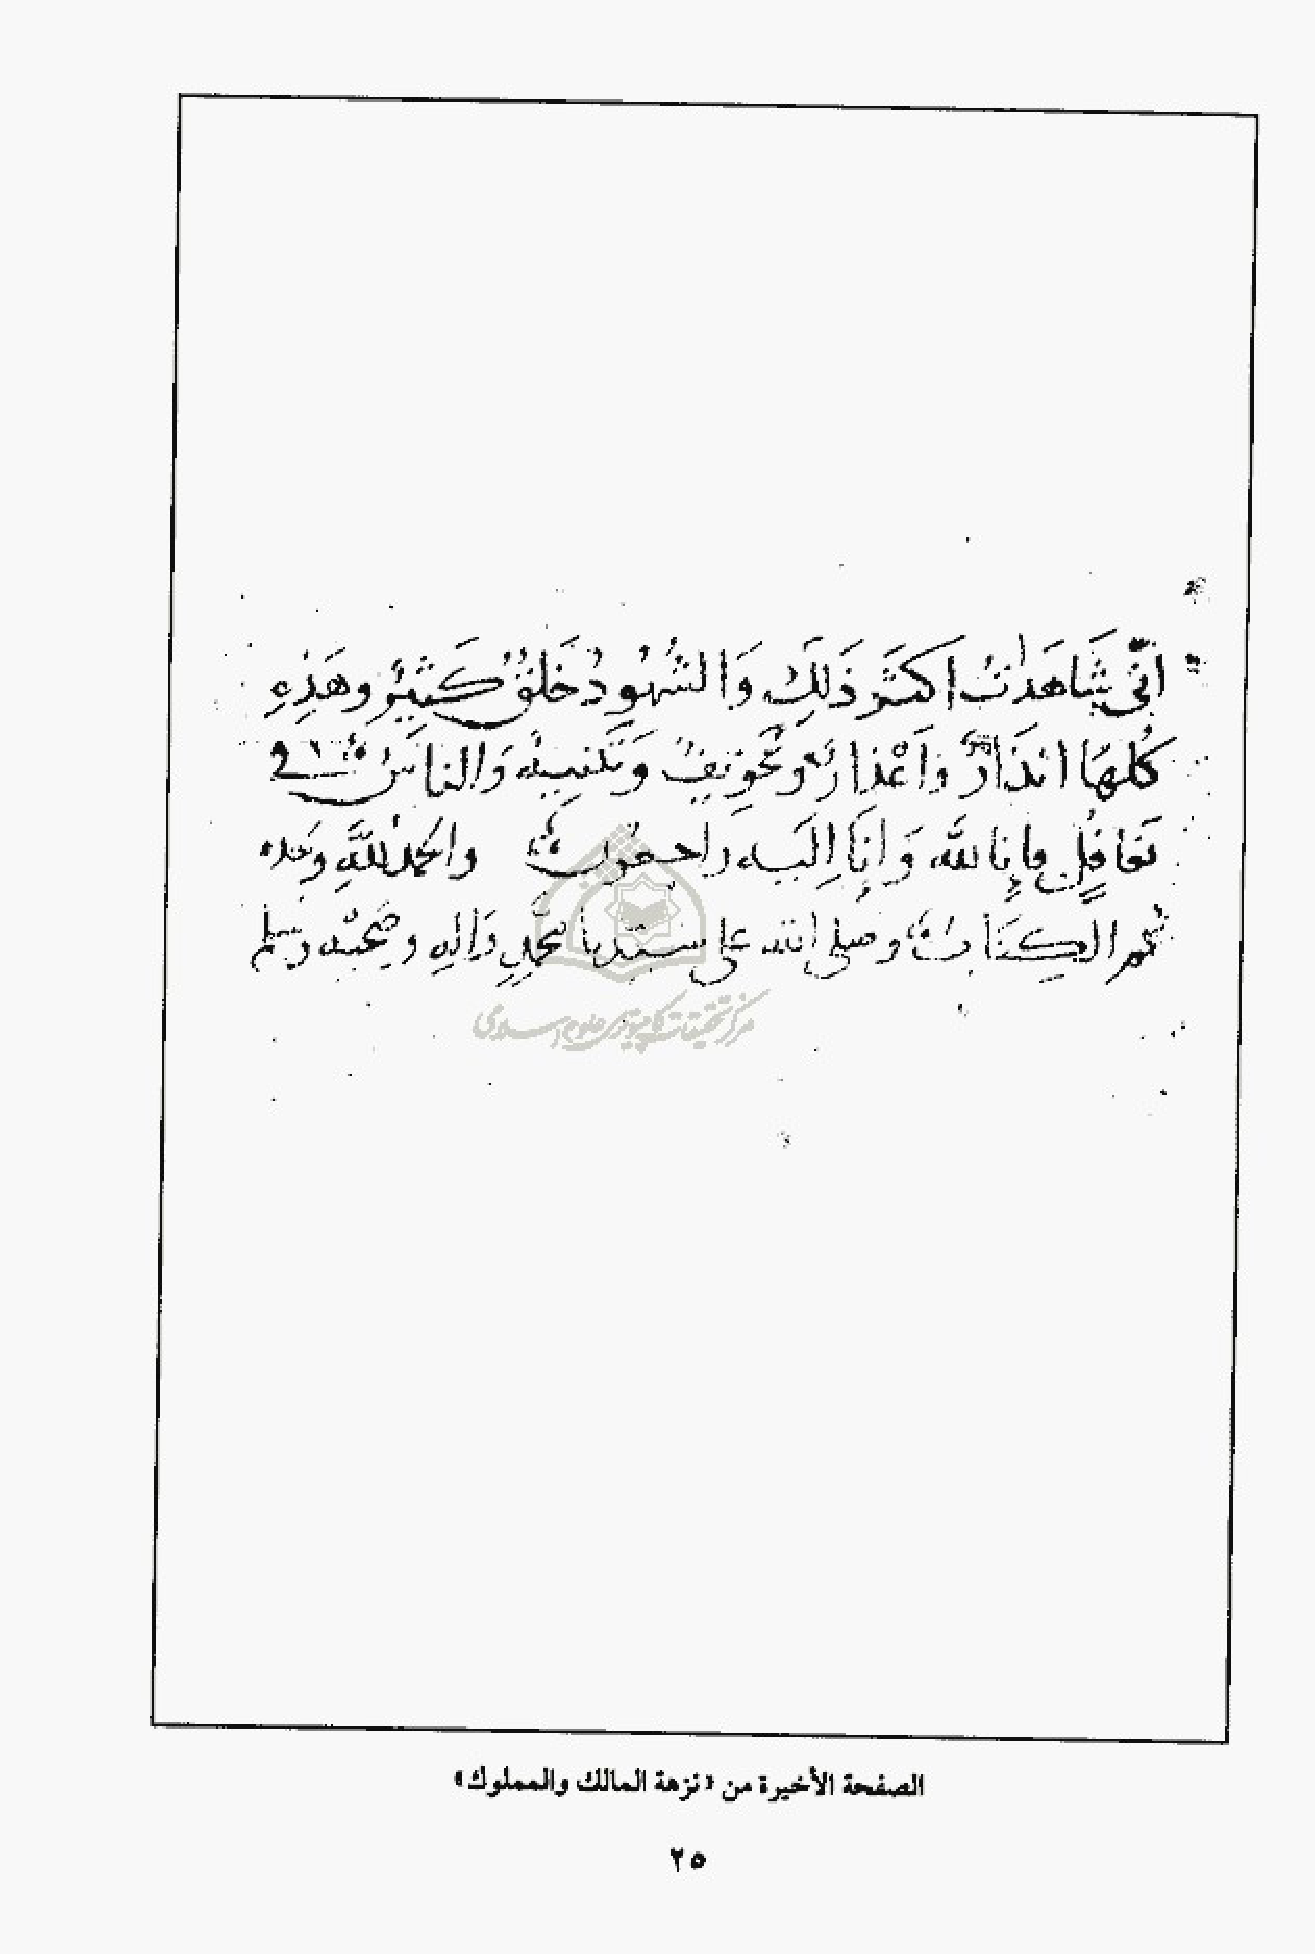 انّي شَاهَدتُ اكثَر ذَلِكَ وَالشُهُودُ خَلقٌ كَثِيرٌ وهَذِهِ
كُلهَا انذَارٌ واَعْذارٌ وتَخوِيفٌ وَتَنبِيهٌ وَالناسُ في
تَغافُلٍ فإِنا لله وَانِا اِليَه راجعُونَ والحَمدُ للَّهِ وَحده
تم الكِتَابُ وصلى الله على سيدنا مُحَمَّدٍ وَالِهِ وصَحبه وسلم
مرکز تحقیقات کامپیوتری علوم اسلامی
الصفحة الأخيرة من «نزهة المالك والمملوك»
٢٥